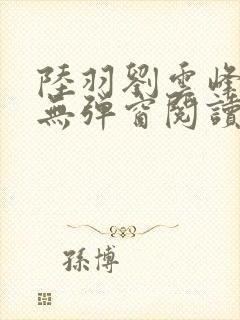 陸羽劉雲峰
無彈窗閱讀
孫博